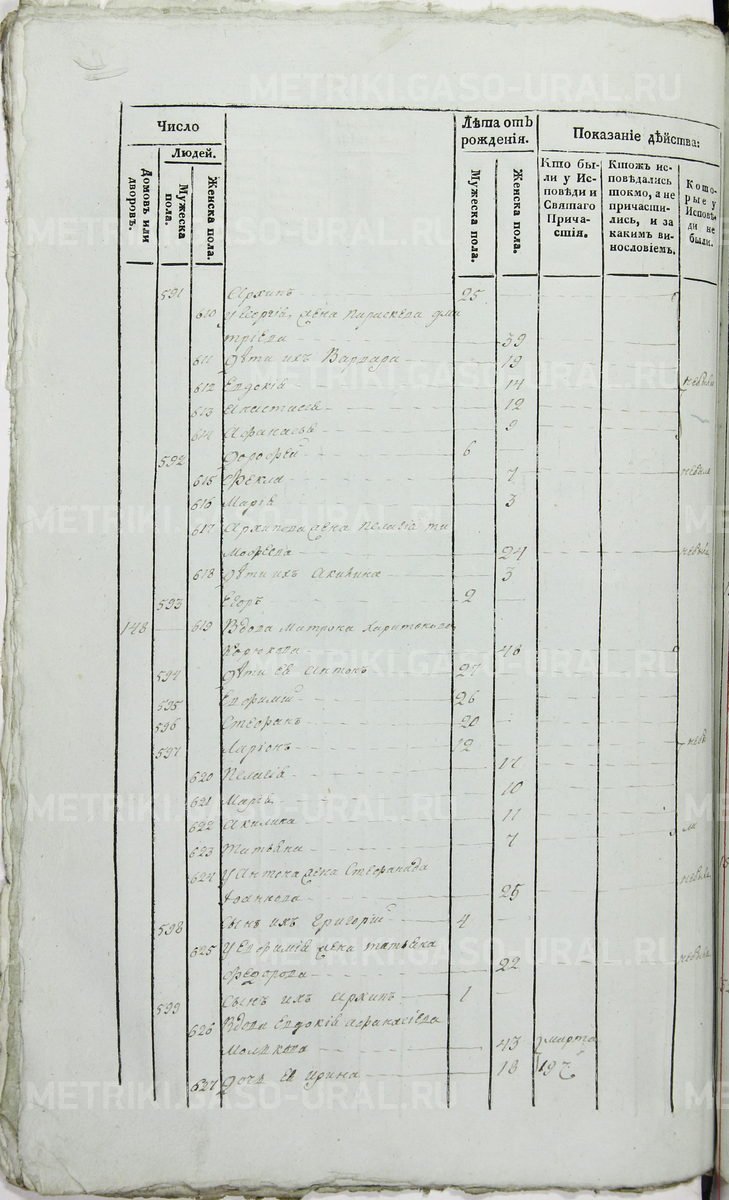 METRIKI.GASO-URAL.RU
Число
Людей.
Домовъ или дворовъ.
Мужеска пола.
Женска пола.
Лѣта отъ рожденія.
Мужеска пола.
Женска пола.
Показаніе дѣйства:
Кто бы-
ли у Ис-
повѣди и
Святаго
Прича-
стія.
Ктожъ ис-
повѣдались
токмо, а не
причасти-
лись, и за
какимъ ви-
нословіемъ.
Кото-
рые у
Исповѣ-
ди не
были.
591 Архипъ 25
610 У Георгія жена Параскева Дми
тріева 39
611 Дѣти ихъ Варвара 19
612 Евдокія 14 небыли
613 Анастасія 12
614 Афанасья 9
592 Дорофей 6
615 Фекла 7
616 Марія 3
617 Архипова жена Пелагія Ти
мофеева 24
618 Дѣти ихъ Акилина 3
593 Егоръ 2
148 619 Вдова Матрона Харитонова
46
594 Дѣти ея Антонъ 27
595 Евфимій 26
596 Стефанъ 20
597 Ларіонъ 12
620 Пелагія 17
621 Марья 10
622 Акилина 11
623 Татьяна 7
624 У Антона жена Стефанида
Іоаннова 25
598 Сынъ ихъ Григорій 4
625 У Евфимія жена Татьяна
Федорова 22
599 Сынъ ихъ Архипъ 1
626 Вдова Евдокія Афанасіева
43 марта
627 Дочь ея Ирина 18 19